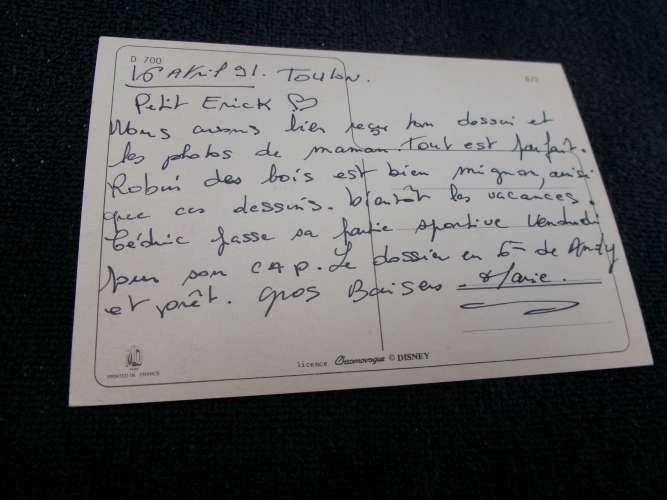 D 700
6/2
16 Avril 91. Toulon.
Petit Erick
Nous avons bien reçu ton dessin et
les photos de maman. Tout est parfait.
Robin des bois est bien mignon, ainsi
que ces dessins. bientôt les vacances.
Cédric passe sa partie sportive Vendredi
pour son CAP. Le dossier en 6e de Andy
et prêt. gros Baisers Marie.
PRINTED IN FRANCE
licence Cosmovogue © DISNEY